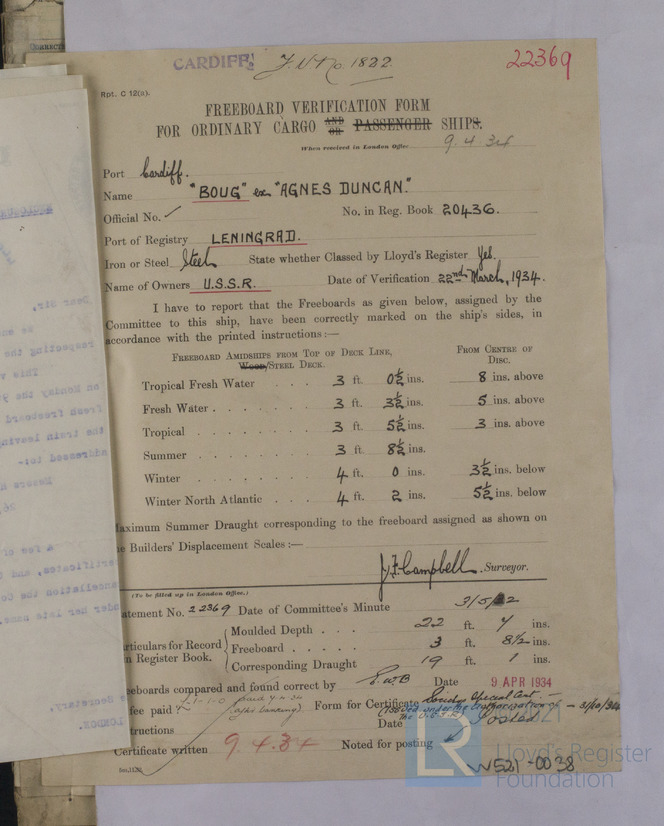 CORRECT
CARDIFF. F.V.No. 1822. 22369
Rpt. C 12(a).
FREEBOARD VERIFICATION FORM
FOR ORDINARY CARGO AND OR PASSENGER SHIPS.
When received in London Office 9.4.34
Port Cardiff.
Name "BOUG" ex "AGNES DUNCAN."
Official No. No. in Reg. Book 20436.
Port of Registry LENINGRAD.
Iron or Steel Steel State whether Classed by Lloyd's Register Yes.
Name of Owners U.S.S.R. Date of Verification 22nd March, 1934.
I have to report that the Freeboards as given below, assigned by the
Committee to this ship, have been correctly marked on the ship's sides, in
accordance with the printed instructions:—
FREEBOARD AMIDSHIPS FROM TOP OF DECK LINE, FROM CENTRE OF
WOOD/STEEL DECK. DISC.
Tropical Fresh Water . . . 3 ft. 0½ ins. 8 ins. above
Fresh Water . . . . . . 3 ft. 3½ ins. 5 ins. above
Tropical . . . . . . . 3 ft. 5½ ins. 3 ins. above
Summer . . . . . . . 3 ft. 8½ ins.
Winter . . . . . . . 4 ft. 0 ins. 3½ ins. below
Winter North Atlantic . . . . 4 ft. 2 ins. 5½ ins. below
aximum Summer Draught corresponding to the freeboard assigned as shown on
e Builders' Displacement Scales:—
J.F. Campbell. Surveyor.
(To be filled up in London Office.)
atement No. 22369 Date of Committee's Minute 3/5/
Moulded Depth . . . 22 ft. 7 ins.
articulars for Record
Freeboard . . . . . 3 ft. 8½ ins.
n Register Book.
Corresponding Draught 19 ft. 1 ins.
eeboards compared and found correct by E.W.B Date 9 APR 1934
fee paid? Form for Certificate
Issued under the authorization of
the U.S.S.R.
Date Posted
tructions
Certificate written 9.4.34 Noted for posting
W521-0038
LR
Lloyd's Register
Foundation
Dear Sir,
We
respecting the
This
on Monday the
fresh freeboard
the train leaving
addressed to:-
Messrs
A few
ertificates, and
ancellation the Co
nder her late name.
Secretary,
LONDON.